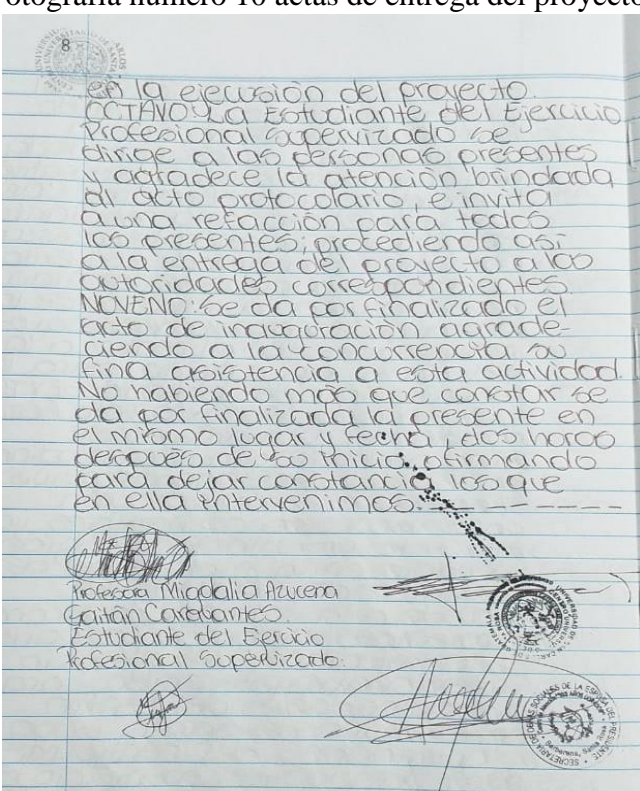 otografía número 10 actas de entrega del proyecto
8
en la ejecusión del proyecto.
OCTAVO: La Estudiante del Ejercicio
Profesional Supervizado se
dirige a las personas presentes
y agradece la atención brindada
al acto protocolario, e invita
a una refacción para todos
los presentes; procediendo así
a la entrega del proyecto a las
autoridades correspondientes.
NOVENO: Se da por finalizado el
acto de inauguración agrade-
ciendo a la concurrencia su
fina asistencia a esta actividad.
No habiendo más que constar se
da por finalizada la presente en
el mismo lugar y fecha, dos horas
después de su inicio, firmando
para dejar constancia los que
en ella intervenimos.
Profesora Migdalia Azucena
Gaitán Caravantes.
Estudiante del Ejercicio
Profesional Supervizado.
SECRETARIA DE OBRAS SOCIALES DE LA ESPOSA DEL PRESIDENTE